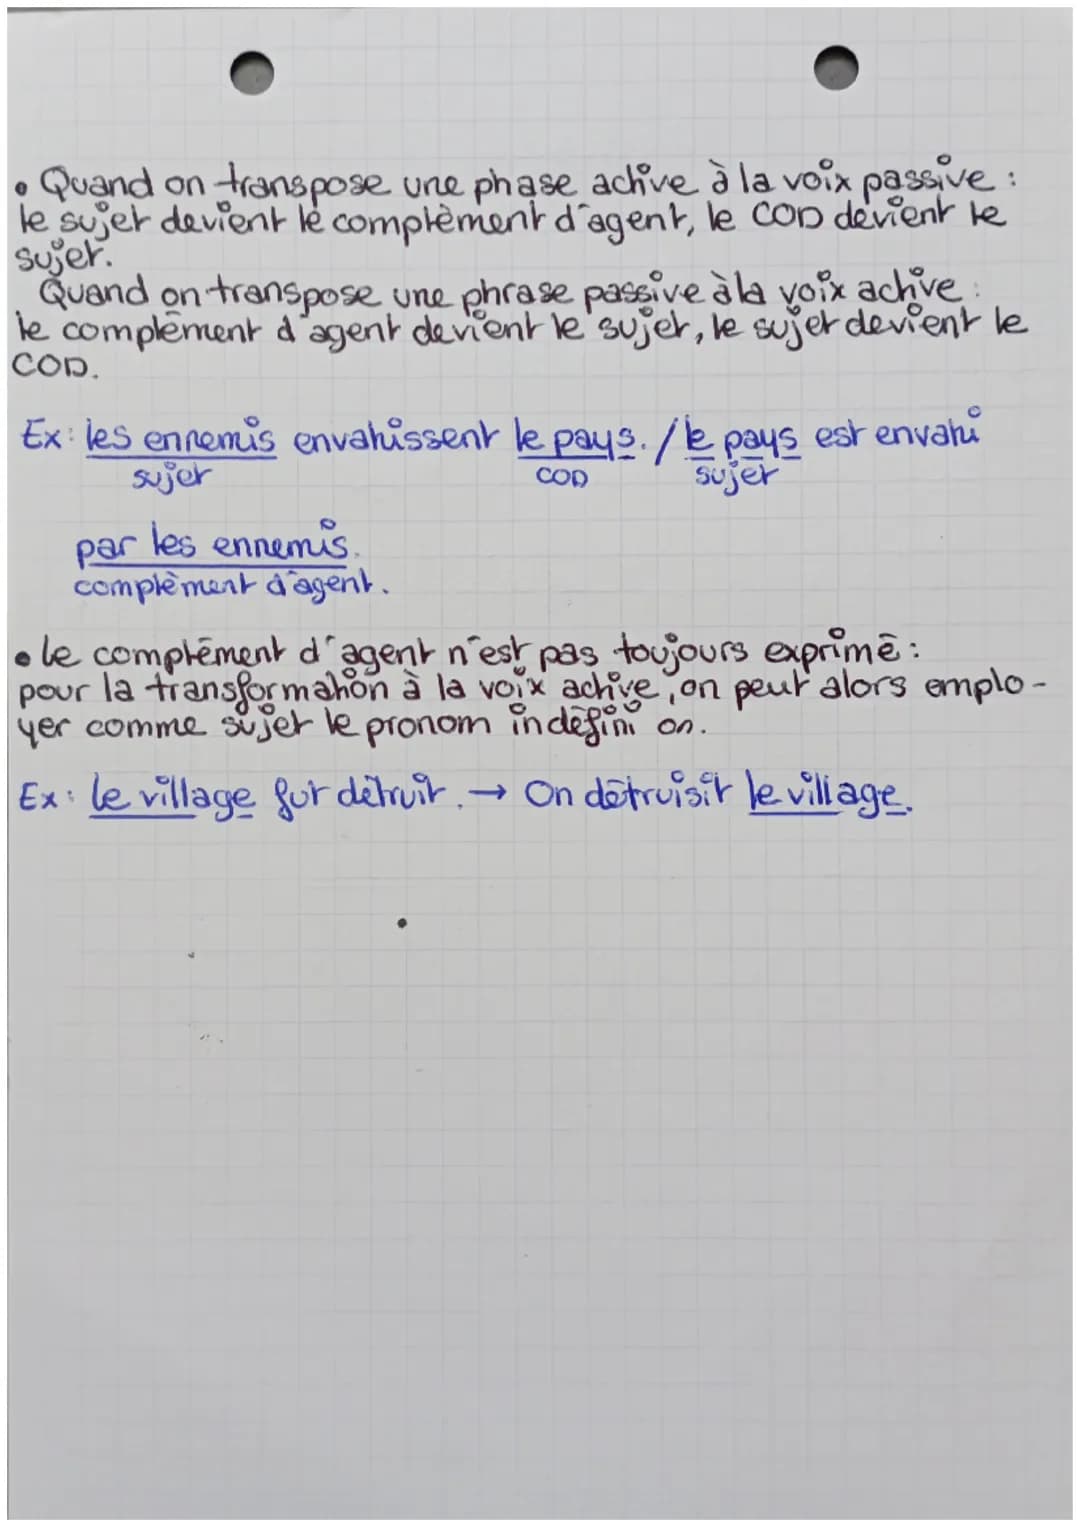 • Quand on transpose une phase active à la voix passive :
le sujet devient le complèment d'agent, le COD devient le
sujet.
Quand on transpose une phrase passive à la voix active :
le complément d'agent devient le sujet, le sujet devient le
COD.
Ex : les ennemis envahissent le pays. / le pays est envahi
sujet COD sujet
par les ennemis.
complèment d'agent.
• le complément d'agent n'est pas toujours exprimé :
pour la transformation à la voix active, on peut alors emplo-
yer comme sujet le pronom indéfini on.
Ex : le village fut détruit. → On détruisit le village.